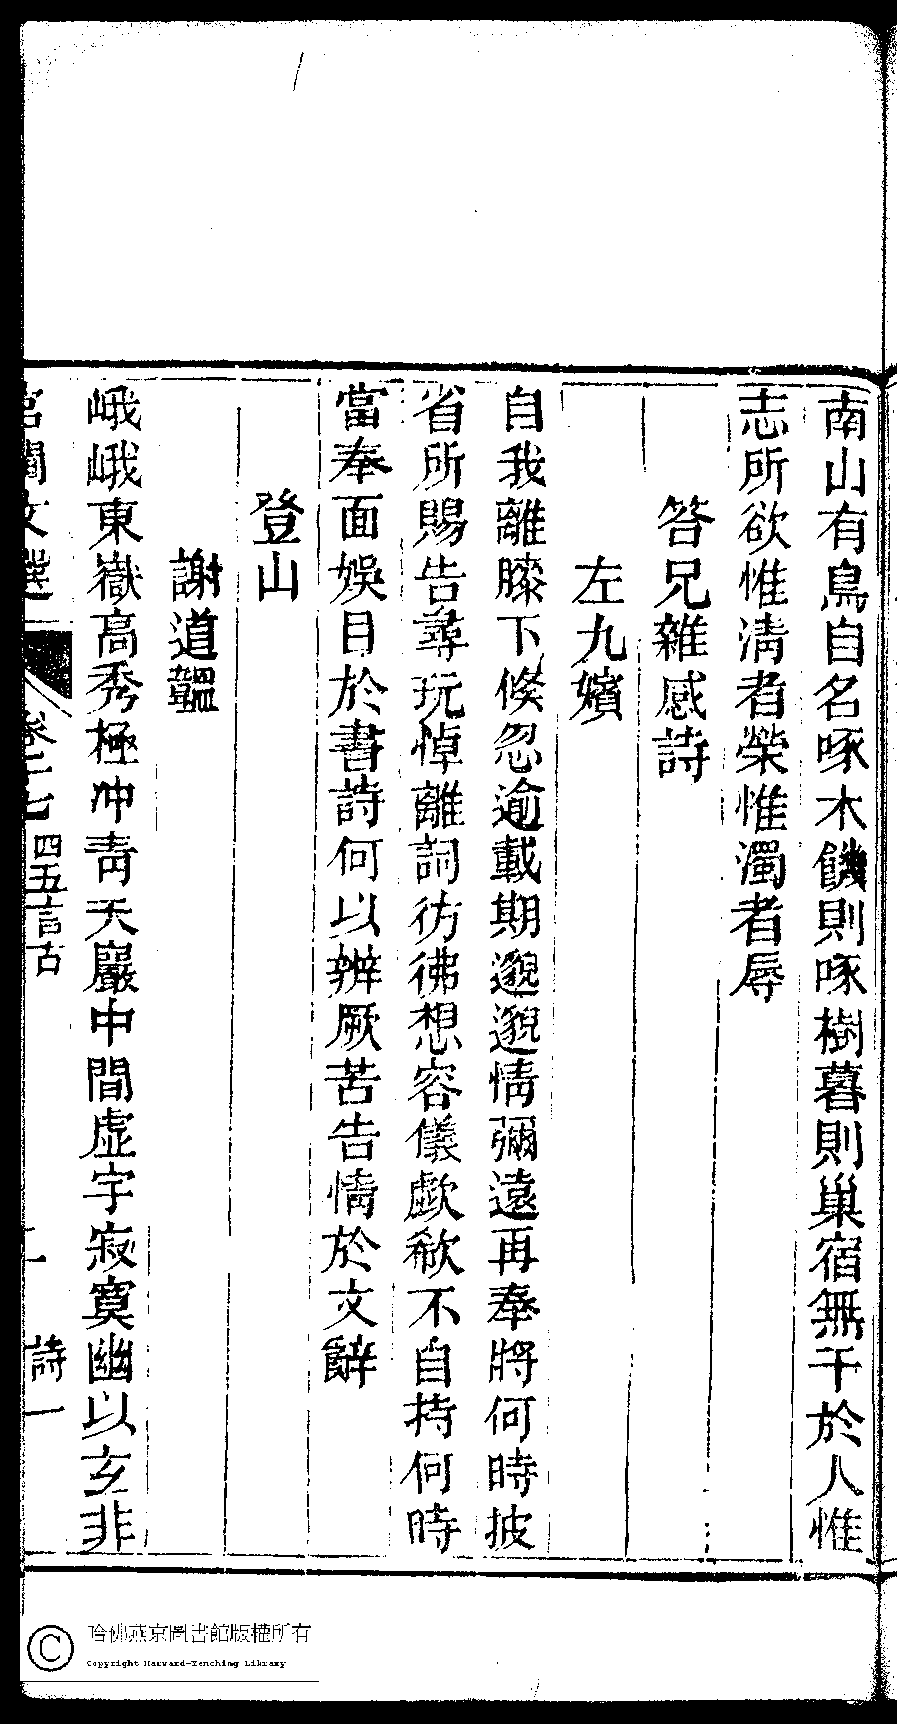 南山有鳥自名啄木饑則啄樹暮則巢宿無干於人惟
志所欲惟淸者榮惟濁者辱
答兄雜感詩
左九嬪
自我離膝下倐忽逾載期邈邈情彌遠再奉將何時披
省所賜告尋玩悼離詞彷彿想容儀歔欷不自持何時
當奉面娛目於書詩何以辨厥苦告情於文辭
登山
謝道韞
峨峨東嶽高秀極冲靑天巖中間虛宇寂寞幽以玄非
宮閨文選
卷二七 四五言古
詩一
哈佛燕京圖書館版權所有
Copyright Harvard-Yenching Library